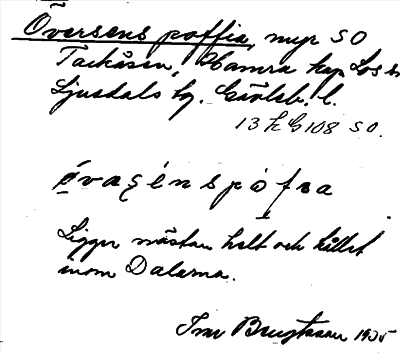 Översens poffia, myr SO
Tackåsen, Hamra kap Los s
Ljusdals tg. Gävleb. l.
13 h G 108 SO.
øvaşénspòfıa
Ligger nästan helt och hållet
inom Dalarna.
Bengtsson 1935